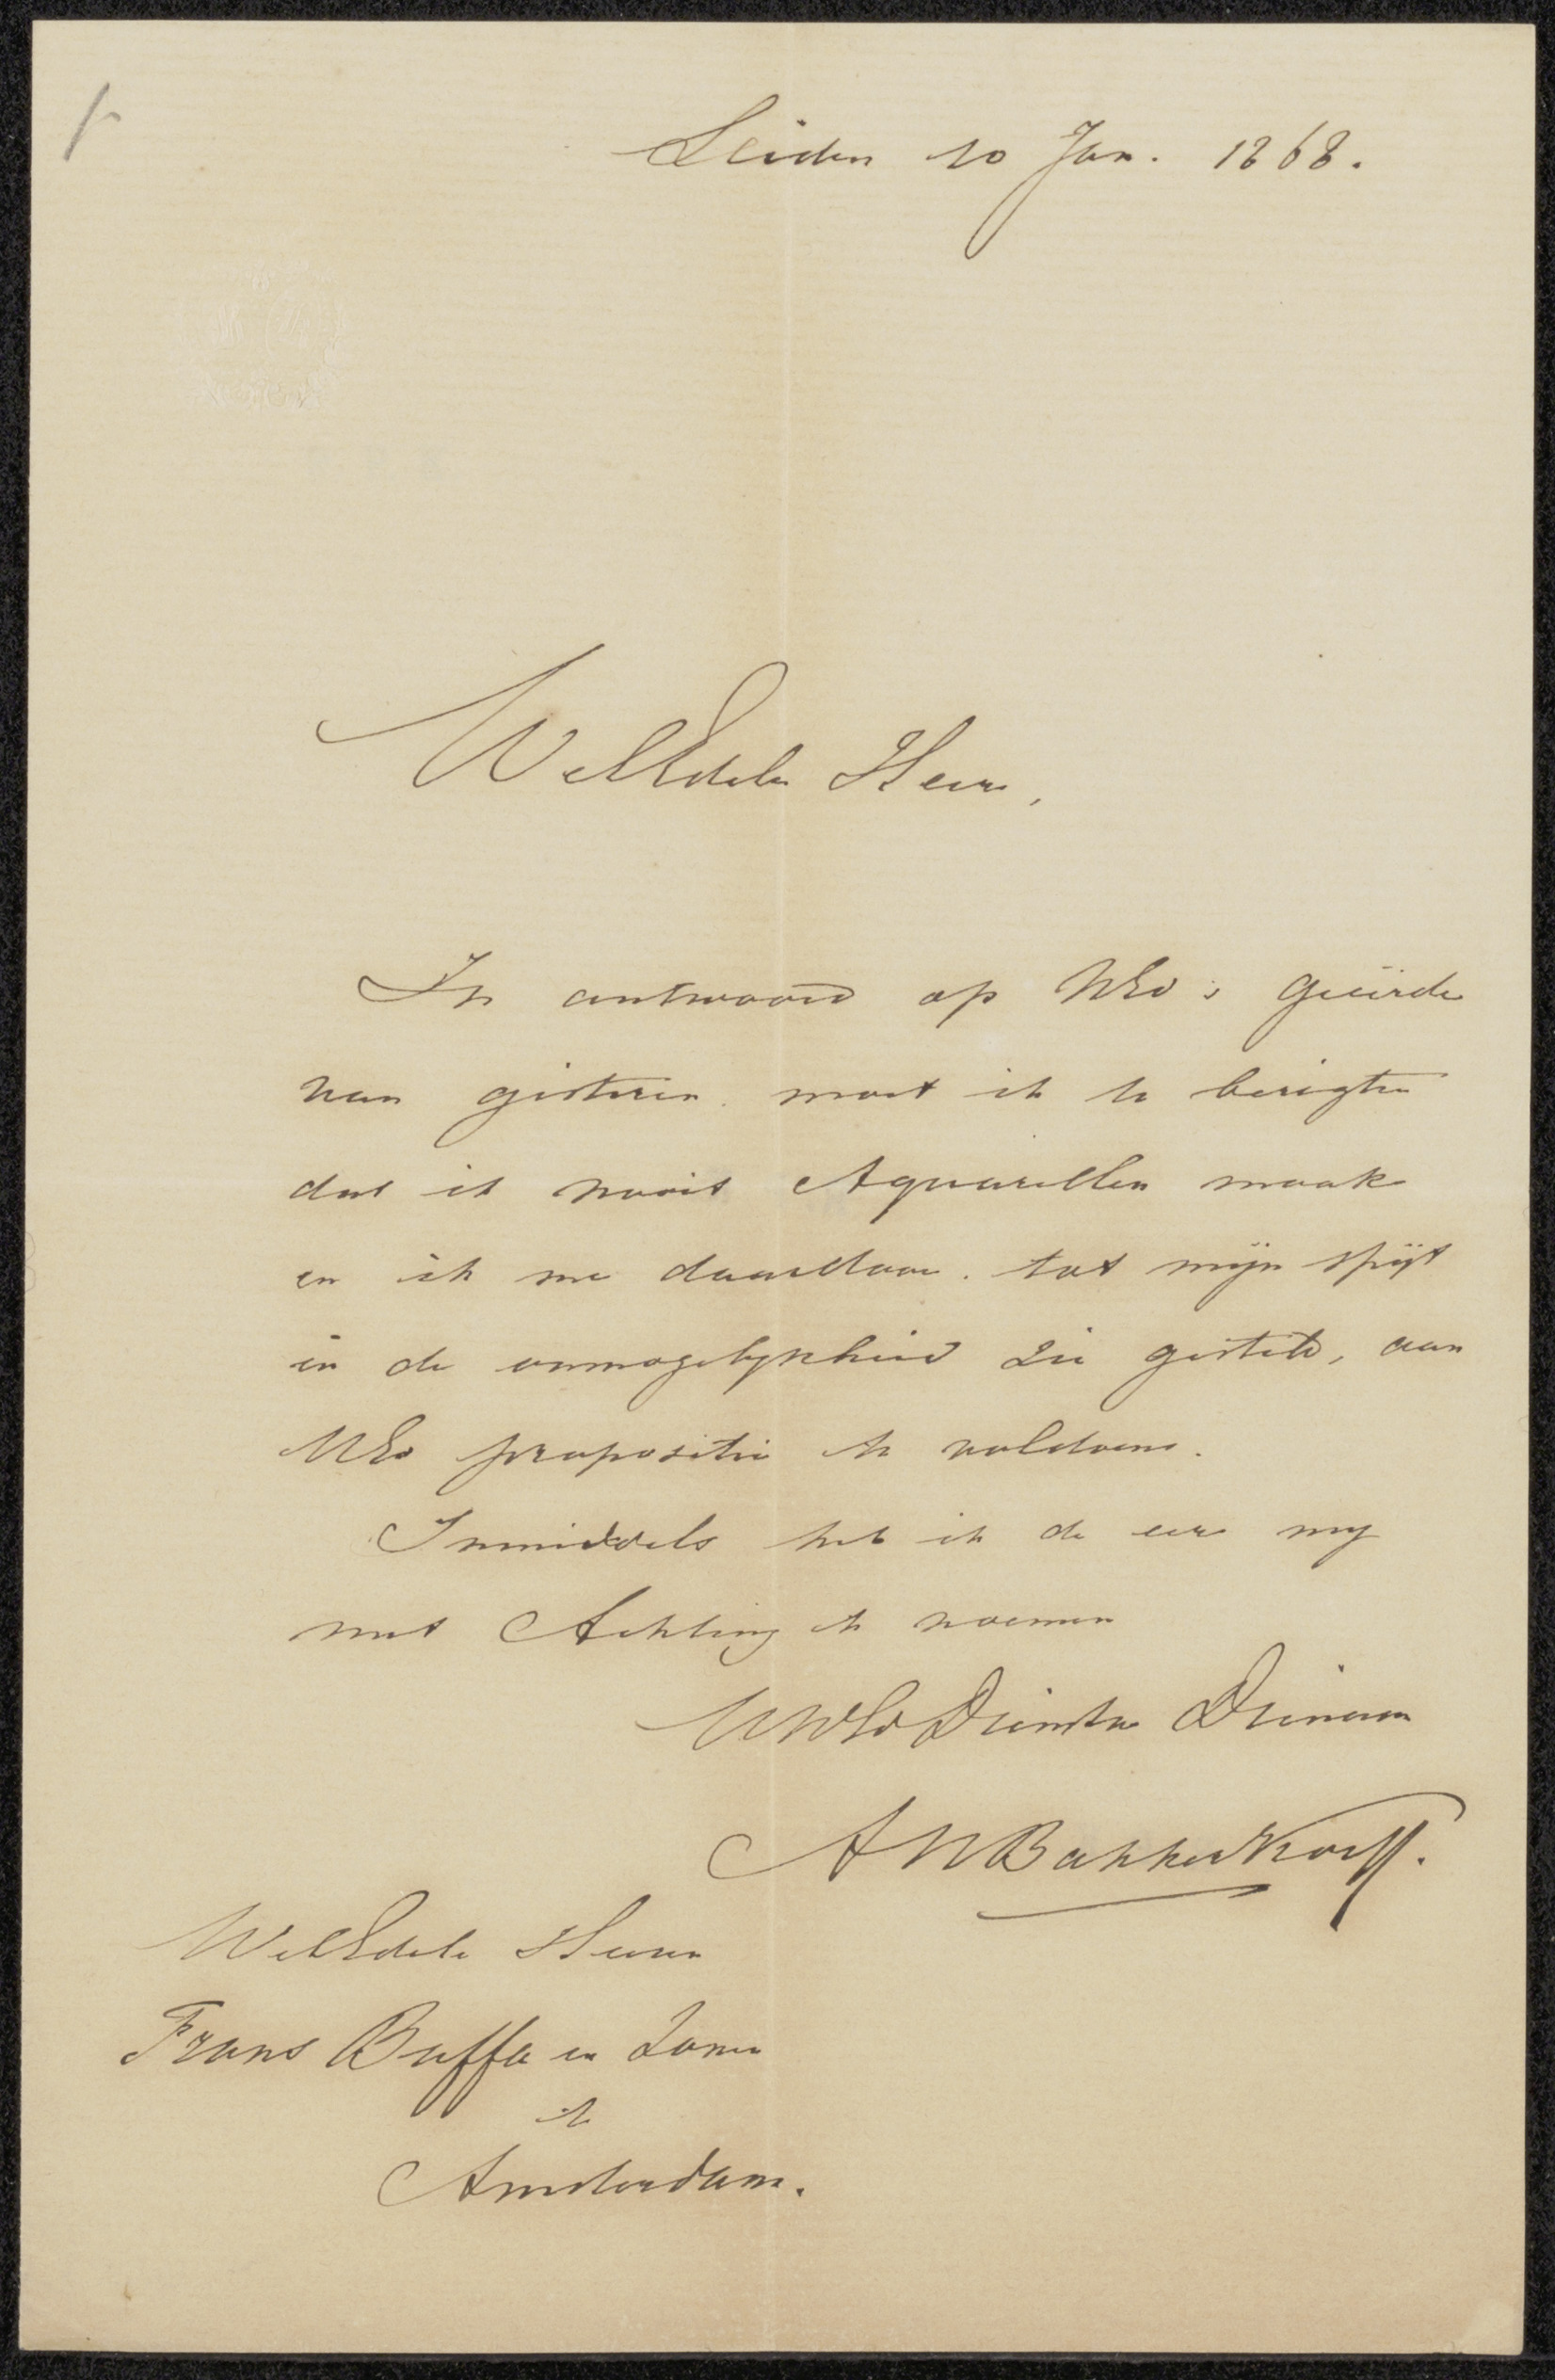 Leiden 10 Jan. 1868.
WelEdele Heer,
In antwoord op UEd's geëerde
van gisteren moet ik U berigten
dat ik nooit Aquarellen maak
en ik me daardoor tot mijn spijt
in de onmogelijkheid zie gesteld, aan
UEd propositie te voldoen.
Inmiddels heb ik de eer mij
met Achting te noemen
UWEd Dienstw Dienaar
AHBakkerKorff.
WelEdele Heeren
Frans Buffa en Zonen
te
Amsterdam.